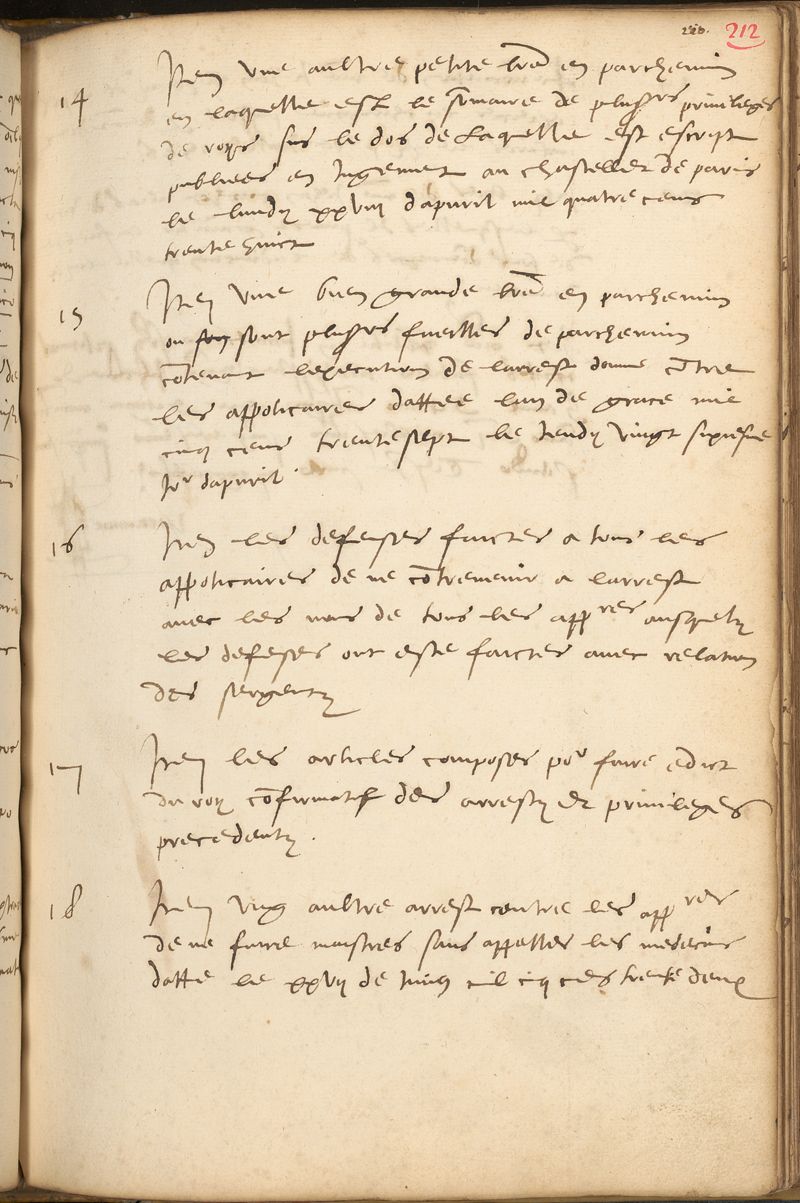 220. 212
14 Item une aultre petite lre en parchemin
en laquelle est le somaire de plusrs privileges
de roys sus le dos de laquelle est escript
publiees en Jugement au chastellet de paris
le lundy xxviij dapuril mil quatre cens
trente huict
15 Item une bien grande lre en parchemin
ou sont plusrs fueilles de parchemin
contenant lexecution de larrest donne contre
les appoticaires dattee lan de grace mil
cinq cens trente sept le Jeudy vingt sixiesme
Jor dapuril.
16 Item les defenses faictes a tous les
appoticaires de ne contrevenir a larrest
avec les noms de tous les appres ausquelz
les defeses ont este faictes avec relation
des sergentz
17 Item les articles composes por faire edict
du roy confirmatif des arrestz et privileges
precedentz.
18 Item ung aultre arrest contre les appres
de ne faire maistres sans appeller les medecins
datte le xxvij de Juing mil cinq ces trente deux